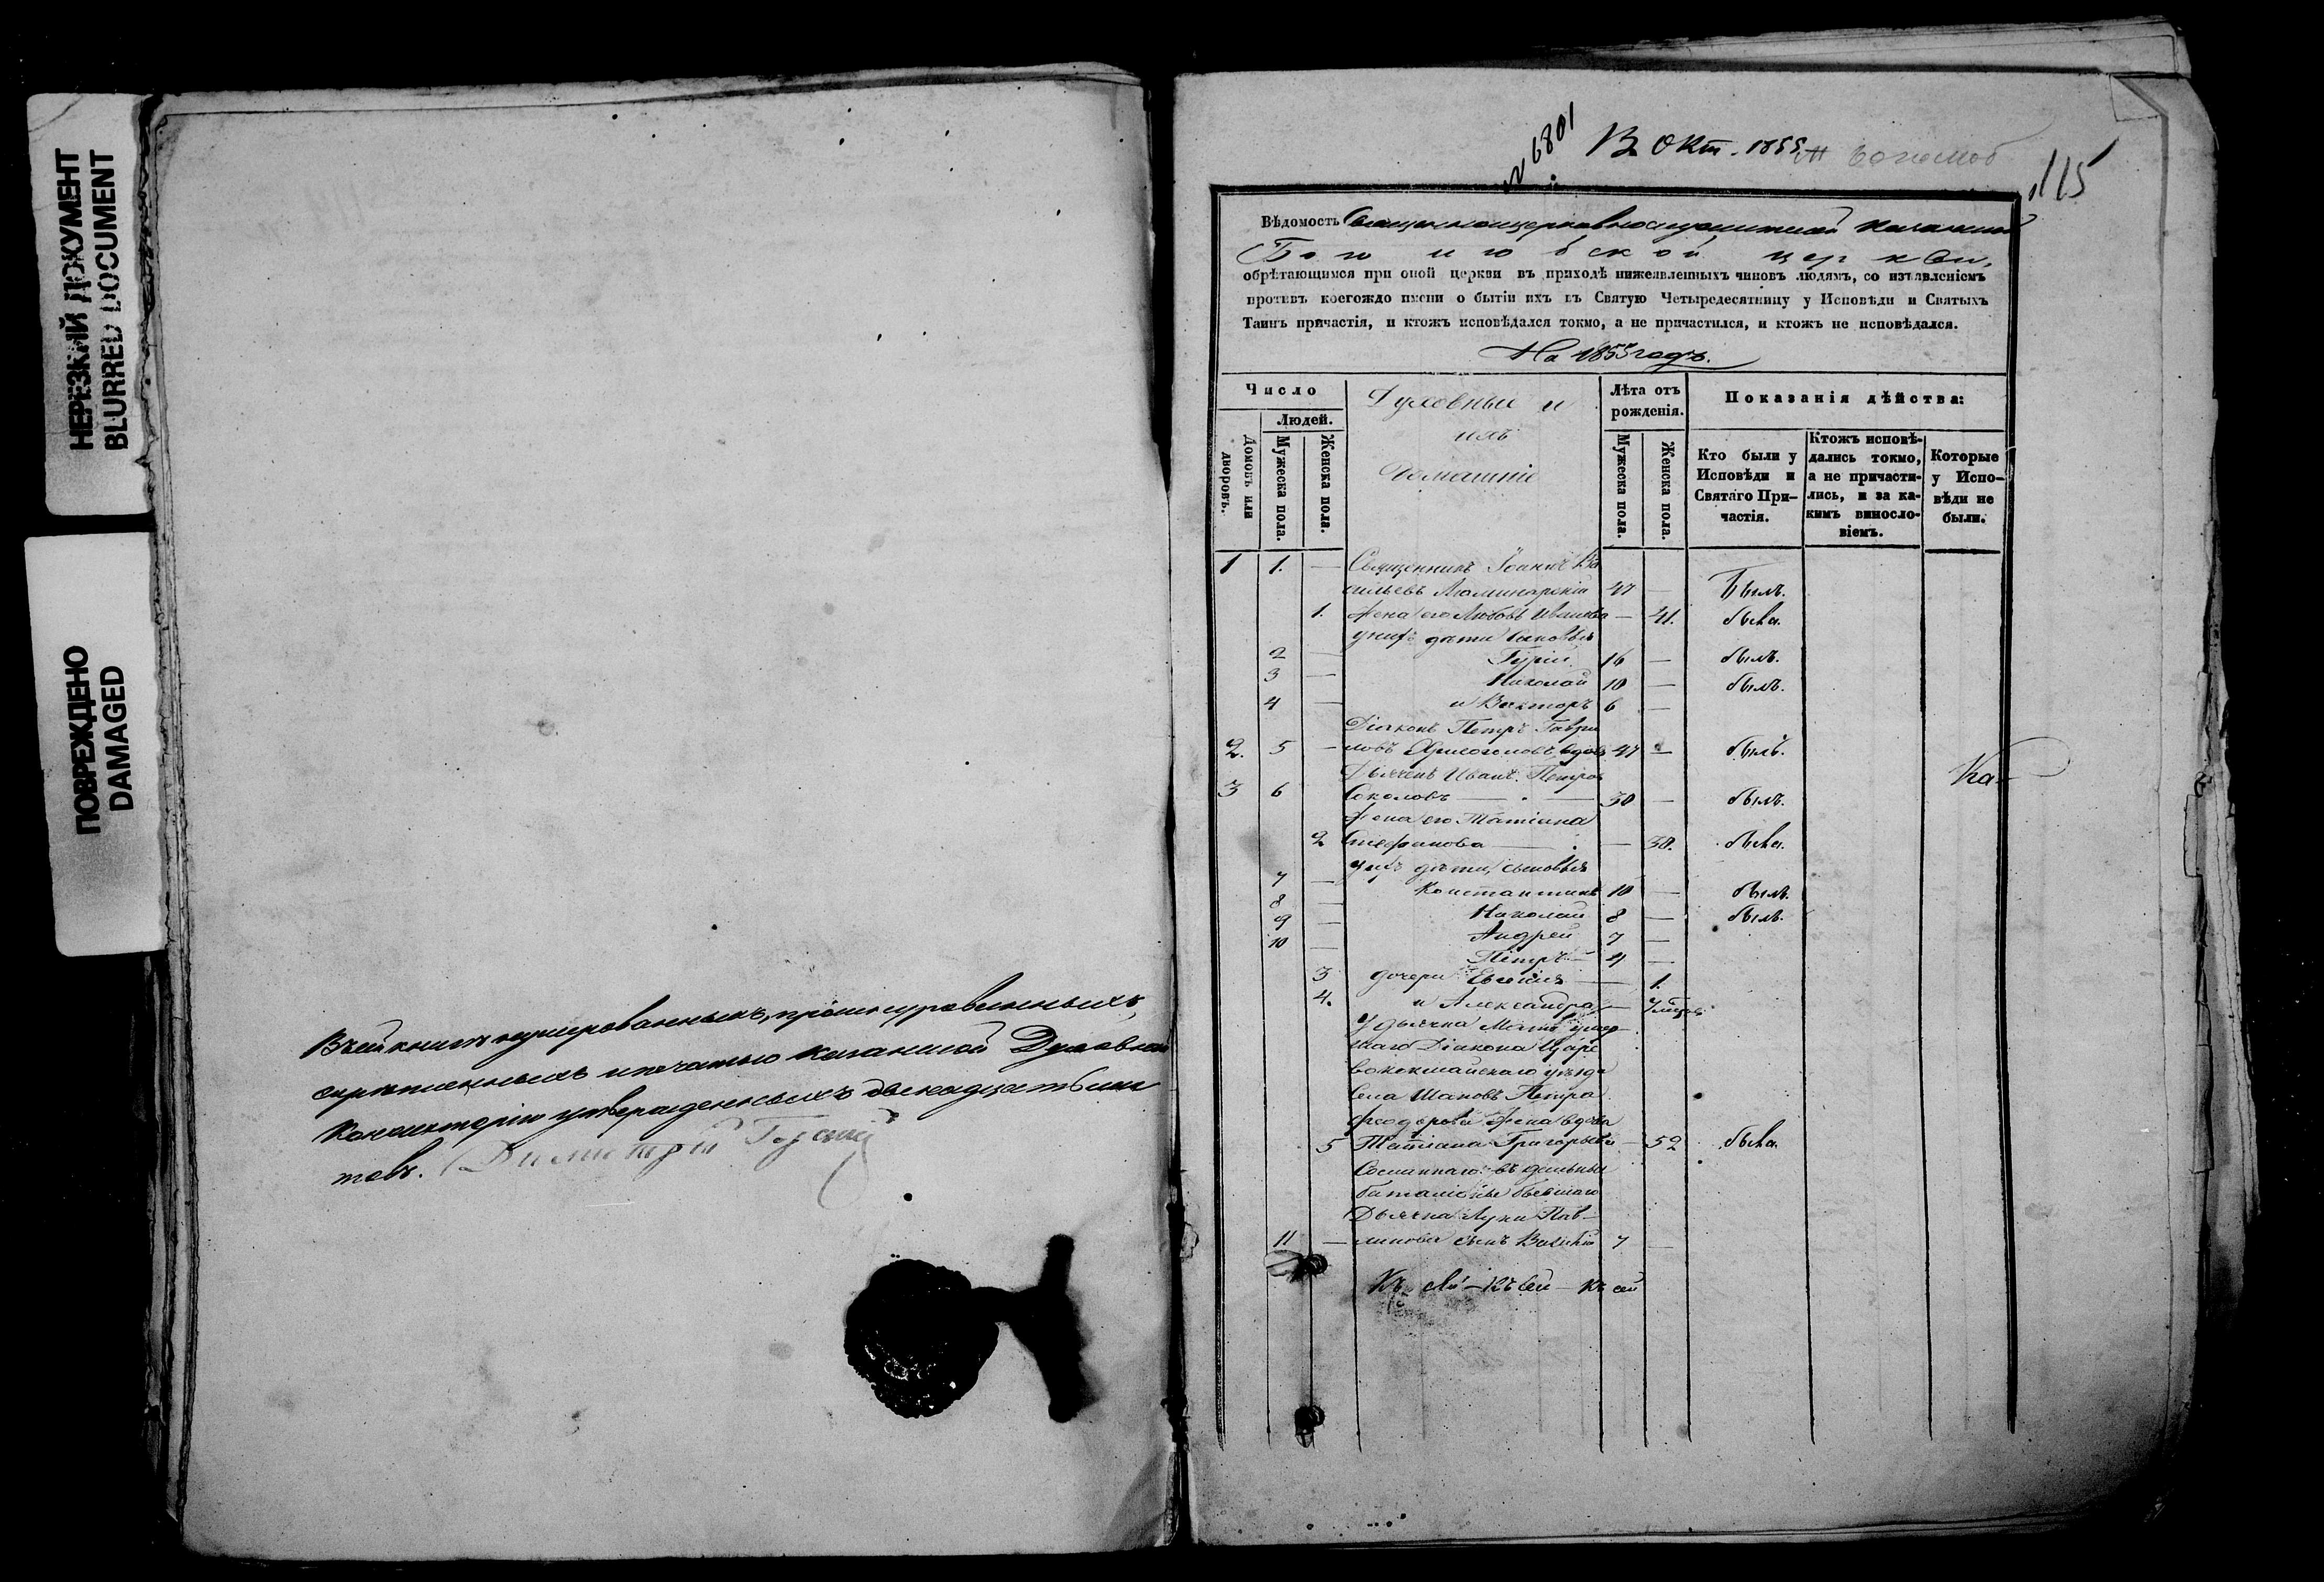 НЕРЕЗКИЙ ДОКУМЕНТ
BLURRED DOCUMENT
ПОВРЕЖДЕНО
DAMAGED
Въ сей книгѣ нумерованныхъ, прошнурованныхъ,
скрѣпленныхъ и печатью Казанской Духовной
Консисторіи утвержденныхъ двенадцать лис
товъ.
№ 6801
В. Окт. 1855
115
Вѣдомость Священноцерковнослужителей Казанской
церкви,
обрѣтающимся при оной церкви въ приходѣ нижеявленныхъ чиновъ людямъ, со изъявленіемъ
противъ коегождо имени о бытіи ихъ въ Святую Четыредесятницу у Исповѣди и Святыхъ
Таинъ причастія, и ктожъ исповѣдался токмо, а не причастился, и ктожъ не исповѣдался.
На 1855 годъ.
Число
Людей.
Домовъ или дворовъ.
Мужеска пола.
Женска пола.
Духовныи и
ихъ
Домашніе
Лѣта отъ рожденія.
Мужеска пола.
Женска пола.
Показанія дѣйства:
Кто были у Исповѣди и Святаго При- частія.
Ктожъ исповѣ- дались токмо, а не причасти- лись, и за ка- кимъ винносло- віемъ.
Которые у Испо- вѣди не были.
1 1. — Священникъ Іоаннъ Ва
сильевъ Люминарскій 47 — Былъ.
1. Жена его Любовь Иванова — 41. была.
у нихъ дѣти сыновья
2 — Гурій 16 — былъ.
3 — Николай 10 — былъ.
4 — и Викторъ 6 —
Діаконъ Петръ Гаври
2. 5 — ловъ вдовъ 47 — былъ.
Ка-
Дьячекъ Иванъ Петровъ
3 6 Соколовъ — 30 — былъ.
Жена его Татіана
2 Стефанова — 30. была.
у нихъ дѣти, сыновья
7 — Константинъ 10 — былъ.
8 — Николай 8 — былъ.
9 — Андрей 7 —
10 — Петръ 4 —
3 дочери Евгенія — 1.
4. и Александра —
У дьячка Мать умер
шаго Діакона Царе
вококшайскаго уѣзда
Села Шаповъ Петра
Феодорова жена вдова
5 Татіана Григорьева — 52 была.
Сосланнаго въ
баталіоны бывшаго
Дьячка Луки Пав-
11 — линова сынъ Василій 7 —
Къ сей — Къ сей — Къ сей